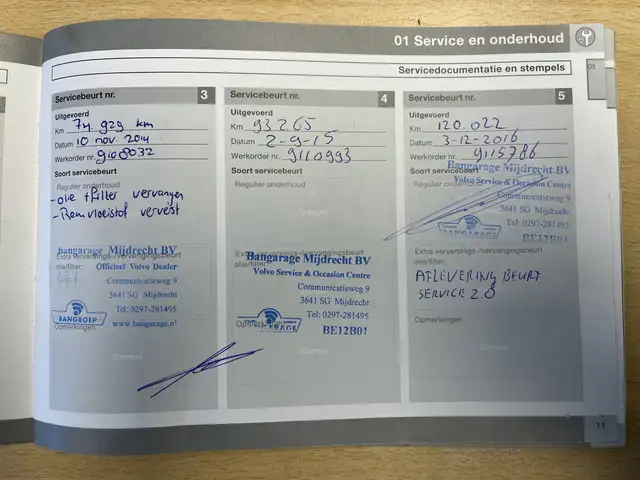 01 Service en onderhoud
Servicedocumentatie en stempels
01
Servicebeurt nr. 3
Uitgevoerd
Km 74.929 km
Datum 10 nov. 2014
Werkorder nr. 9108032
Soort servicebeurt
Regulier onderhoud
- olie + filter vervangen
- Remvloeistof ververst
Stempel
Bangarage Mijdrecht BV
Extra verversings-/vervangingsbeurt
olie/filter:
Officieel Volvo Dealer
Communicatieweg 9
3641 SG Mijdrecht
Tel: 0297-281495
BANGROEP
www.bangarage.nl
Opmerkingen
Stempel
Servicebeurt nr. 4
Uitgevoerd
Km 93265
Datum 2-9-15
Werkorder nr. 9110993
Soort servicebeurt
Regulier onderhoud
Stempel
Extra verversings-/vervangingsbeurt
olie/filter:
Bangarage Mijdrecht BV
Volvo Service & Occasion Centre
Communicatieweg 9
3641 SG Mijdrecht
Tel: 0297-281495
BANGARAGE
BE12B01
Stempel
Servicebeurt nr. 5
Uitgevoerd
Km 120.022
Datum 3-12-2016
Werkorder nr. 9115786
Soort servicebeurt
Bangarage Mijdrecht BV
Regulier onderhoud
Volvo Service & Occasion Centre
Communicatieweg 9
3641 SG Mijdrecht
Tel: 0297-281495
BANGARAGE
BE12B01
Extra verversings-/vervangingsbeurt
olie/filter:
AFLEVERING BEURT
SERVICE 2.0
Opmerkingen
Stempel
11